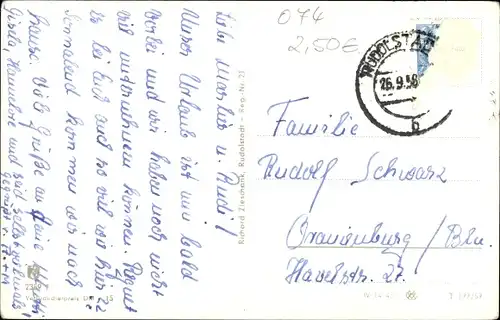 074
2,50€
RUDOLSTADT
26.9.58
6
Liebe Marlies u. Rudi!
Unser Urlaub ist nun bald
vorbei und wir haben noch nicht
viel unternehmen können. Regnet
es bei Euch auch so viel wie hier?
Sonnabend kommen wir nach
hause. Viele Grüße an Deine
Gisela, Hannelore und seid selbst vielmals
gegrüßt v.
Familie
Rudolf Schwarz
Oranienburg / Bln.
Havelstr. 27.
Richard Zieschank, Rudolstadt - Reg.-Nr. 21
Verbraucherpreis DM -,15